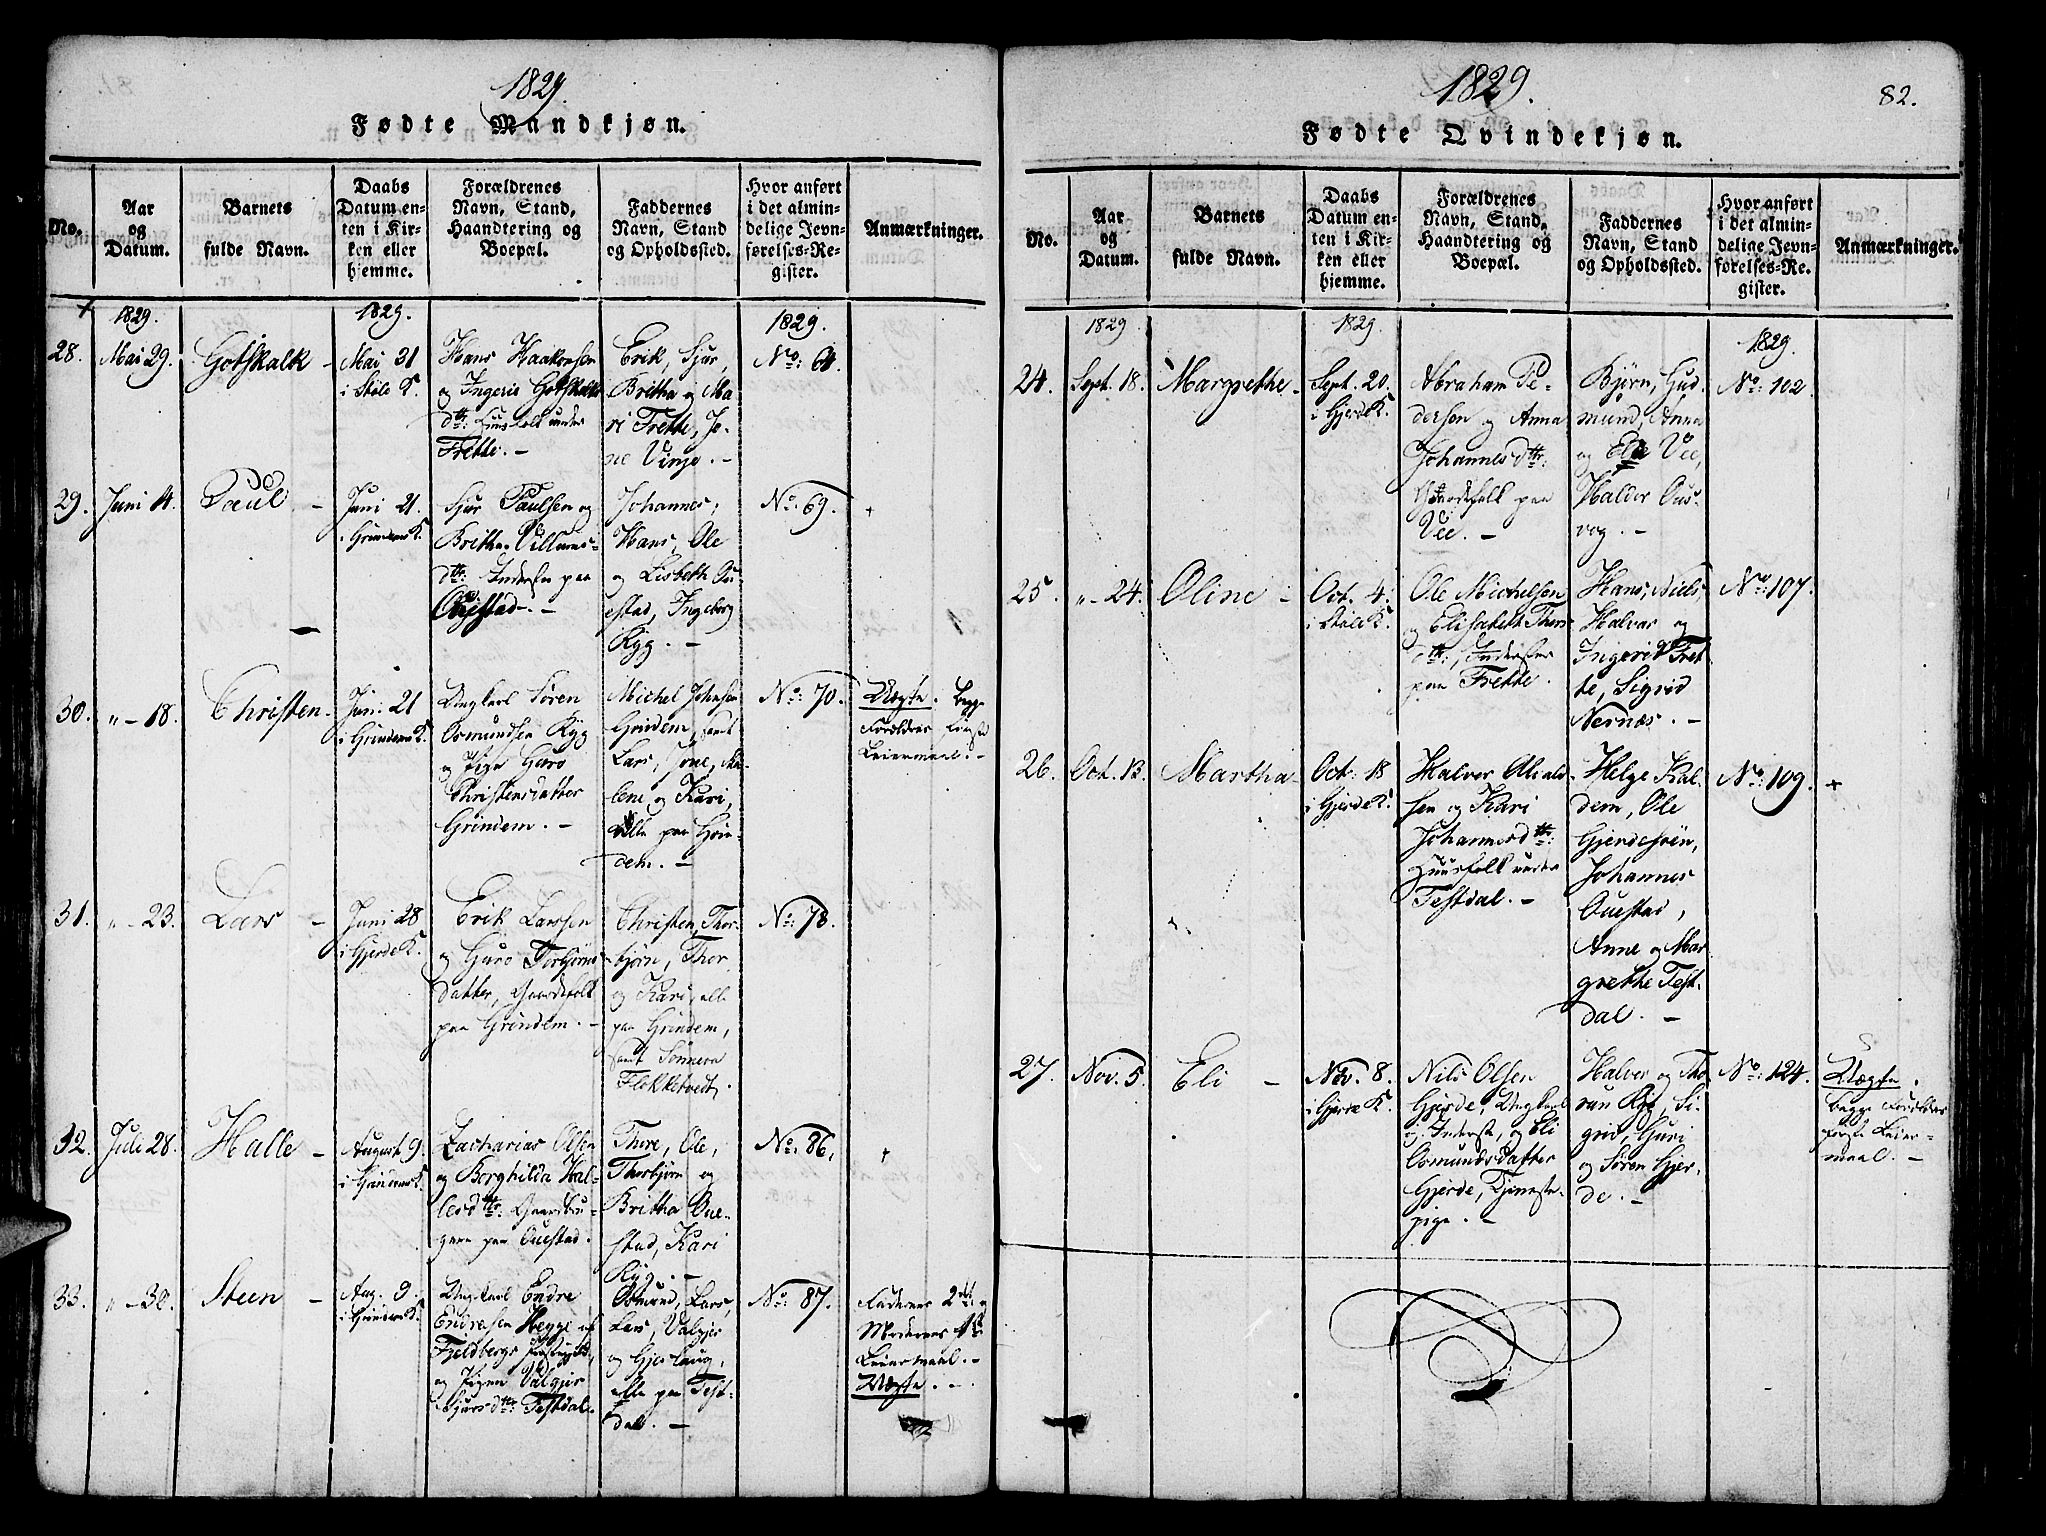 1829.
Fødte Mandkjøn.
No.
Aar
og
Datum.
Barnets
fulde Navn.
Daabs
Datum en-
ten i Kir-
ken eller
hjemme.
Forældrenes
Navn, Stand,
Haandtering og
Boepæl.
Faddernes
Navn, Stand
og Opholdssted.
Hvor anført
i det almin-
delige Jevn-
førelses-Re-
gister.
Anmærkninger.
1829.
1829.
1829.
28.
Mai 29.
Gotskalk -
Mai 31
i Stole K.
Hans Haakonsen
og Ingerid Gotskalks
dtr: Huusfolk under
Frette. -
Erik, Sjur,
Britha og Ma
ri Frette, Jo-
ne Vinje. -
No: 61.
29.
Juni 4.
Paul -
Juni 21.
i Grindem K.
Sjur Paulsen og
Britha Villums-
dtr: Inderster paa
Ouestad. -
Johannes,
Hans, Ole
og Lisbeth Ou-
estad, Ingeborg
Ryg. -
No: 69.
+
30.
" - 18.
Christen -
Juni 21
i Grindem K.
Ungkarl Søren
Osmundsen Ryg
og Pige Guro
Christensdatter
Grindem. -
Michel Johnsen
Grindem, samt
Lars, Jone, Ma-
lene og Kari,
alle paa Grin-
dem. -
No: 70.
Uægte. begge
Forældres første
Leiermaal. -
31.
" - 23.
Lars -
Juni 28
i Gjerde K.
Erik Larssen
og Guro Torbjørns-
datter, Gaardfolk
paa Grindem. -
Christen, Thor-
bjørn, Thor
og Kari, alle
paa Grindem,
samt Sønneva
Flokketvedt.
No: 78.
32.
Juli 28.
Halle -
August 9.
i Grindem K.
Zacharias Olsen
og Borghilda Hal-
lesdtr: Gaardbru-
gere paa Ouestad.
Thore, Ole,
Thorbjørn og
Britha Oue-
stad, Kari
Ryg. -
No: 86.
+
33.
" - 30.
Steen -
Aug. 9.
i Grindem K.
Ungkarl Endre
Endresen Hegge af
Fjeldbergs Præstegjeld,
og Pigen Valgjer
Sjursdtr: Testdal.
Osmund, Lars,
Lars, Valgjer
og Gjerlaug,
alle paa Test-
dal. -
No: 87.
Faderens 2det og
Moderens 1ste
Leiermaal. -
Uægte. -
1829.
82.
Fødte Qvindekjøn.
No.
Aar
og
Datum.
Barnets
fulde Navn.
Daabs
Datum en-
ten i Kir-
ken eller
hjemme.
Forældrenes
Navn, Stand,
Haandtering og
Boepæl.
Faddernes
Navn, Stand
og Opholdssted.
Hvor anført
i det almin-
delige Jevn-
førelses-Re-
gister.
Anmærkninger.
1829
1829.
1829.
24.
Sept. 18.
Margrethe -
Sept. 20.
i Gjerde K.
Abraham Pe-
dersen og Anna
Johannesdtr:
Gaardfolk paa
Vee. -
Bjørn, Gud-
mund, Anna
og Else Vee,
Haldor Ous-
vog. -
No: 102.
25.
" - 24.
Oline -
Oct. 4.
i Stole K.
Ole Michelsen
og Elisabeth Thors
dtr:, Inderster
paa Frette.
Hans, Niels,
Halvar og
Ingerid Fret-
te, Sigrid
Nernæs. -
No: 107.
26.
Oct. 13.
Martha -
Oct. 18
i Gjerde K.
Halver Olsald-
sen og Kari
Johannesdtr:
Huusfolk under
Testdal. -
Helge Kal-
dem, Ole
Gjerdesvên,
Johannes
Ouestad,
Anne og Mar
grethe Test-
dal. -
No: 109.
+
27.
Nov. 5.
Eli -
Nov. 8.
i Gjerde K.
Nils Olsen
Gjerde, Ungkarl
og Inderste, og Eli
Osmundsdatter
Gjerde, Tjeneste-
pige. -
Halver og Tho
run Ryg, Si-
grid, Guri
og Søren Gjer-
de. -
No: 124.
Uægte.
begge Forældres
første Leier-
maal. -